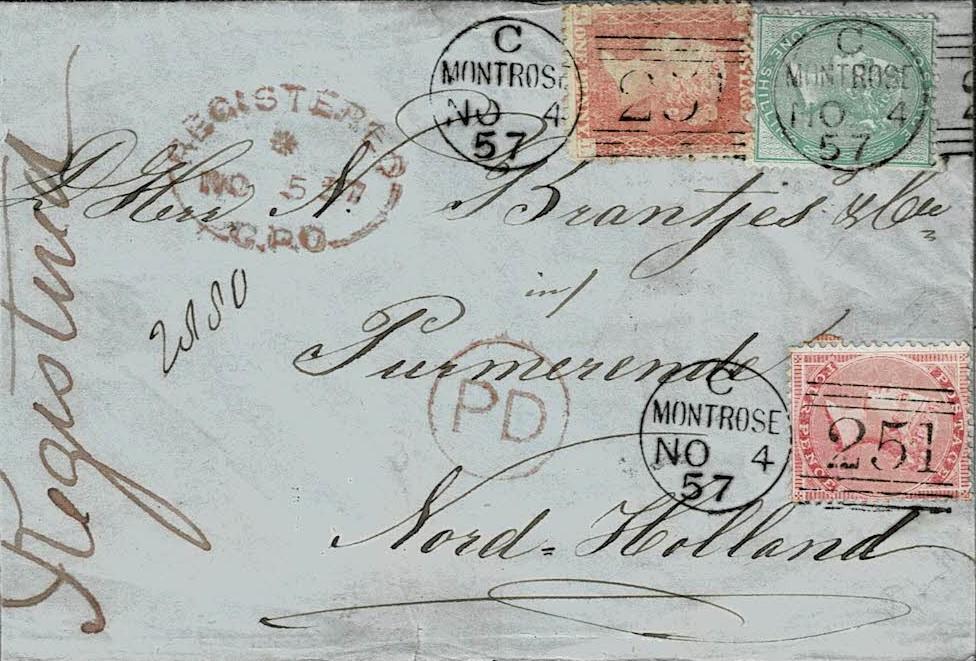 Registered
REGISTERED
NO 5 57
G.P.O
C
MONTROSE
NO 4
57
251
C
MONTROSE
NO 4
57
Herr N. Brantjes & Co
in
Purmerende
Nord=Holland
PD
C
MONTROSE
NO 4
57
251
POSTAGE
FOURPENCE